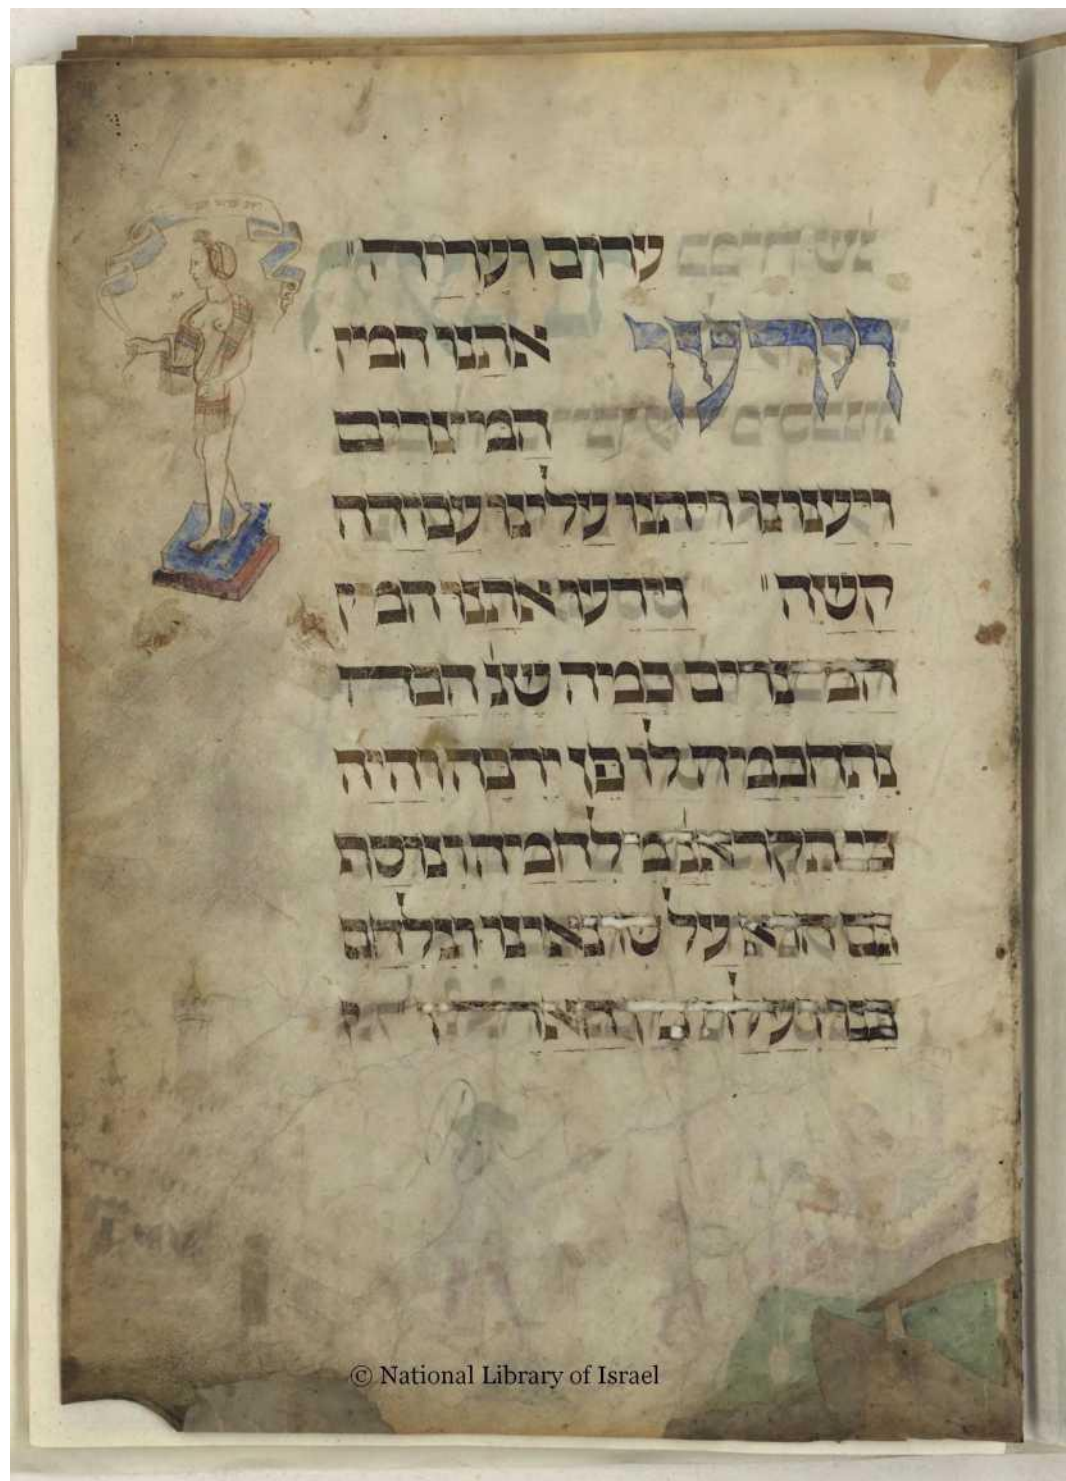 ערום ועריה
וירעו אתנו המצ
המצרים
ויענונו ויתנו עלינו עבודה
קשה וירעו אתנו המצ
המצרים כמה שנ הבה
נתחכמה לו פן ירבה והיה
כי תקראנה מלחמה ונוסף
גם הוא על שונאינו ונלחם
בנו ועלה מן הארץ
© National Library of Israel